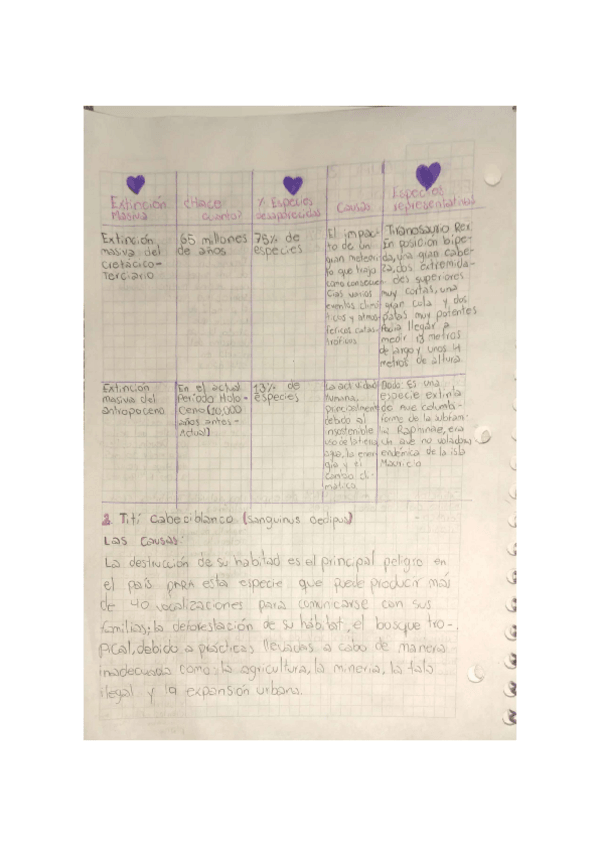 Extinción
Masiva
¿Hace
cuanto?
% Especies
desaparecidas
Causas
Especies
representativas
Extinción
masiva del
cretácico-
Terciario
65 millones
de años
75% de
especies
El impac
to de un
gran meteori
to que trajo
como consecuen
cias varios
eventos climá
ticos y atmos
féricos catas
tróficos
Tiranosaurio Rex.
En posición bípe-
da, una gran cabe-
za, dos extremida-
des superiores
muy cortas, una
gran cola y dos
patas muy potentes
Podía llegar a
medir 13 metros
de largo y unos 4
metros de altura
Extinción
masiva del
antropoceno
En el actual
Período Holo-
Ceno (10,000
años antes-
Actual)
13% de
especies
La actividad
humana,
principalmente
debido al
insostenible
uso de la tierra
agua, la ener
gía, y el
cambio cli-
mático
Dodo: Es una
especie extinta
de ave columbi-
forme de la subfami-
lia Raphinae, era
un ave no voladora
endémica de la isla
Mauricio
2. Tití cabeciblanco (sanguinus oedipus)
Las causas:
La destrucción de su habitad es el principal peligro en
el país para esta especie que puede producir más
de 40 vocalizaciones para comunicarse con sus
familias; la deforestación de su hábitat, el bosque tro-
pical, debido a prácticas llevadas a cabo de manera
inadecuada como: la agricultura, la minería, la tala
ilegal y la expansión urbana.